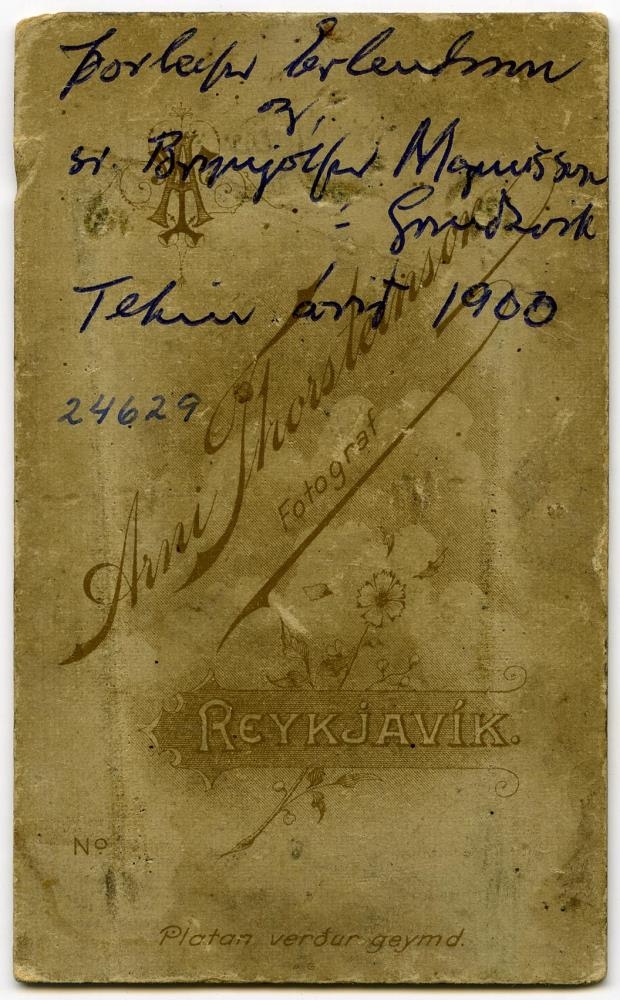 Þorleifur Erlendsson
og
sr. Brynjólfur Magnússon
í Grindavík
Tekin árið 1900
24629
AT
Arni Thorsteinson
Fotograf
REYKJAVÍK.
No
Platan verður geymd.